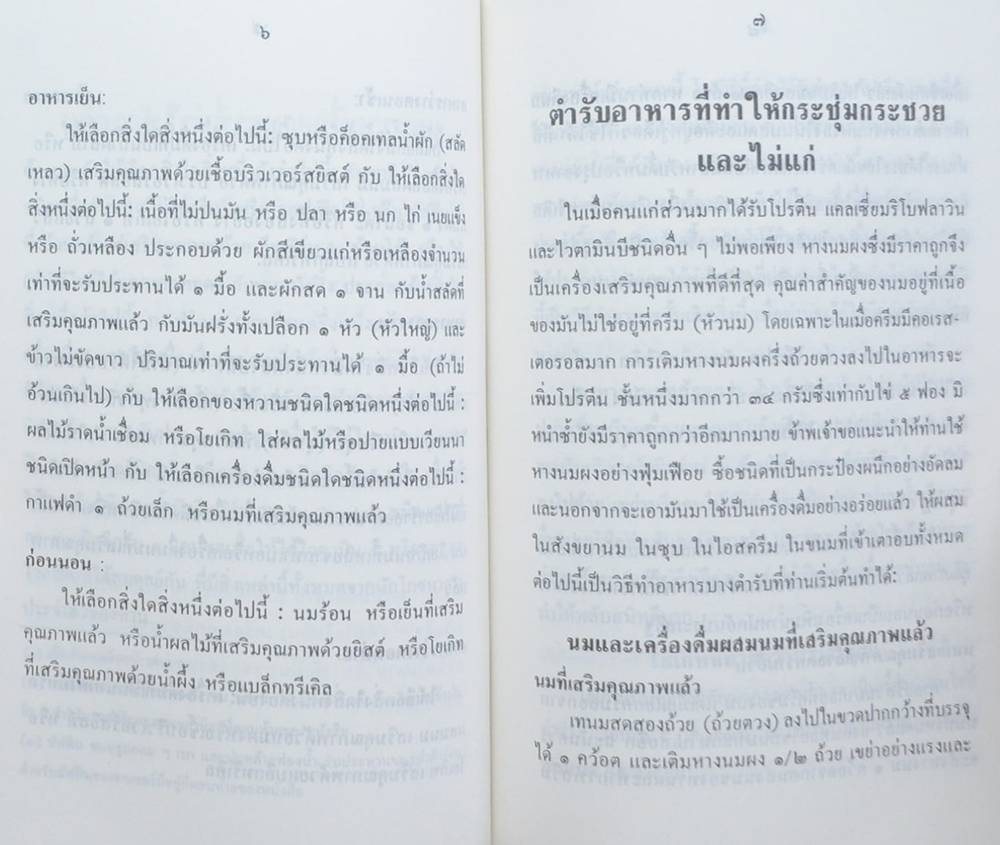 ๖
อาหารเย็น:
ให้เลือกสิ่งใดสิ่งหนึ่งต่อไปนี้: ซุบหรือค็อคเทลน้ำผัก (สลัด
เหลว) เสริมคุณภาพด้วยเชื้อบริวเวอร์สยิสต์ กับ ให้เลือกสิ่งใด
สิ่งหนึ่งต่อไปนี้: เนื้อที่ไม่ปนมัน หรือ ปลา หรือ นก ไก่ เนยแข็ง
หรือ ถั่วเหลือง ประกอบด้วย ผักสีเขียวแก่หรือเหลืองจำนวน
เท่าที่จะรับประทานได้ ๑ มื้อ และผักสด ๑ จาน กับน้ำสลัดที่
เสริมคุณภาพแล้ว กับมันฝรั่งทั้งเปลือก ๑ หัว (หัวใหญ่) และ
ข้าวไม่ขัดขาว ปริมาณเท่าที่จะรับประทานได้ ๑ มื้อ (ถ้าไม่
อ้วนเกินไป) กับ ให้เลือกของหวานชนิดใดชนิดหนึ่งต่อไปนี้ :
ผลไม้ราดน้ำเชื่อม หรือโยเกิท ใส่ผลไม้หรือปายแบบเวียนนา
ชนิดเปิดหน้า กับ ให้เลือกเครื่องดื่มชนิดใดชนิดหนึ่งต่อไปนี้ :
กาแฟดำ ๑ ถ้วยเล็ก หรือนมที่เสริมคุณภาพแล้ว
ก่อนนอน :
ให้เลือกสิ่งใดสิ่งหนึ่งต่อไปนี้ : นมร้อน หรือเย็นที่เสริม
คุณภาพแล้ว หรือน้ำผลไม้ที่เสริมคุณภาพด้วยยิสต์ หรือโยเกิท
ที่เสริมคุณภาพด้วยน้ำผึ้ง หรือแบล็กทรีเคิล
๗
ตำรับอาหารที่ทำให้กระชุ่มกระชวย
และไม่แก่
ในเมื่อคนแก่ส่วนมากได้รับโปรตีน แคลเซี่ยมริโบฟลาวิน
และไวตามินบีชนิดอื่น ๆ ไม่พอเพียง หางนมผงซึ่งมีราคาถูกจึง
เป็นเครื่องเสริมคุณภาพที่ดีที่สุด คุณค่าสำคัญของนมอยู่ที่เนื้อ
ของมันไม่ใช่อยู่ที่ครีม (หัวนม) โดยเฉพาะในเมื่อครีมมีคอเรส-
เตอรอลมาก การเติมหางนมผงครึ่งถ้วยตวงลงไปในอาหารจะ
เพิ่มโปรตีน ชั้นหนึ่งมากกว่า ๓๔ กรัมซึ่งเท่ากับไข่ ๕ ฟอง มิ
หนำซ้ำยังมีราคาถูกกว่าอีกมากมาย ข้าพเจ้าขอแนะนำให้ท่านใช้
หางนมผงอย่างฟุ่มเฟือย ซื้อชนิดที่เป็นกระป๋องผนึกอย่างอัดลม
และนอกจากจะเอามันมาใช้เป็นเครื่องดื่มอย่างอร่อยแล้ว ให้ผสม
ในสังขยานม ในซุบ ในไอสครีม ในขนมที่เข้าเตาอบทั้งหมด
ต่อไปนี้เป็นวิธีทำอาหารบางตำรับที่ท่านเริ่มต้นทำได้:
นมและเครื่องดื่มผสมนมที่เสริมคุณภาพแล้ว
นมที่เสริมคุณภาพแล้ว
เทนมสดสองถ้วย (ถ้วยตวง) ลงไปในขวดปากกว้างที่บรรจุ
ได้ ๑ คว๊อต และเติมหางนมผง ๑/๒ ถ้วย เขย่าอย่างแรงและ